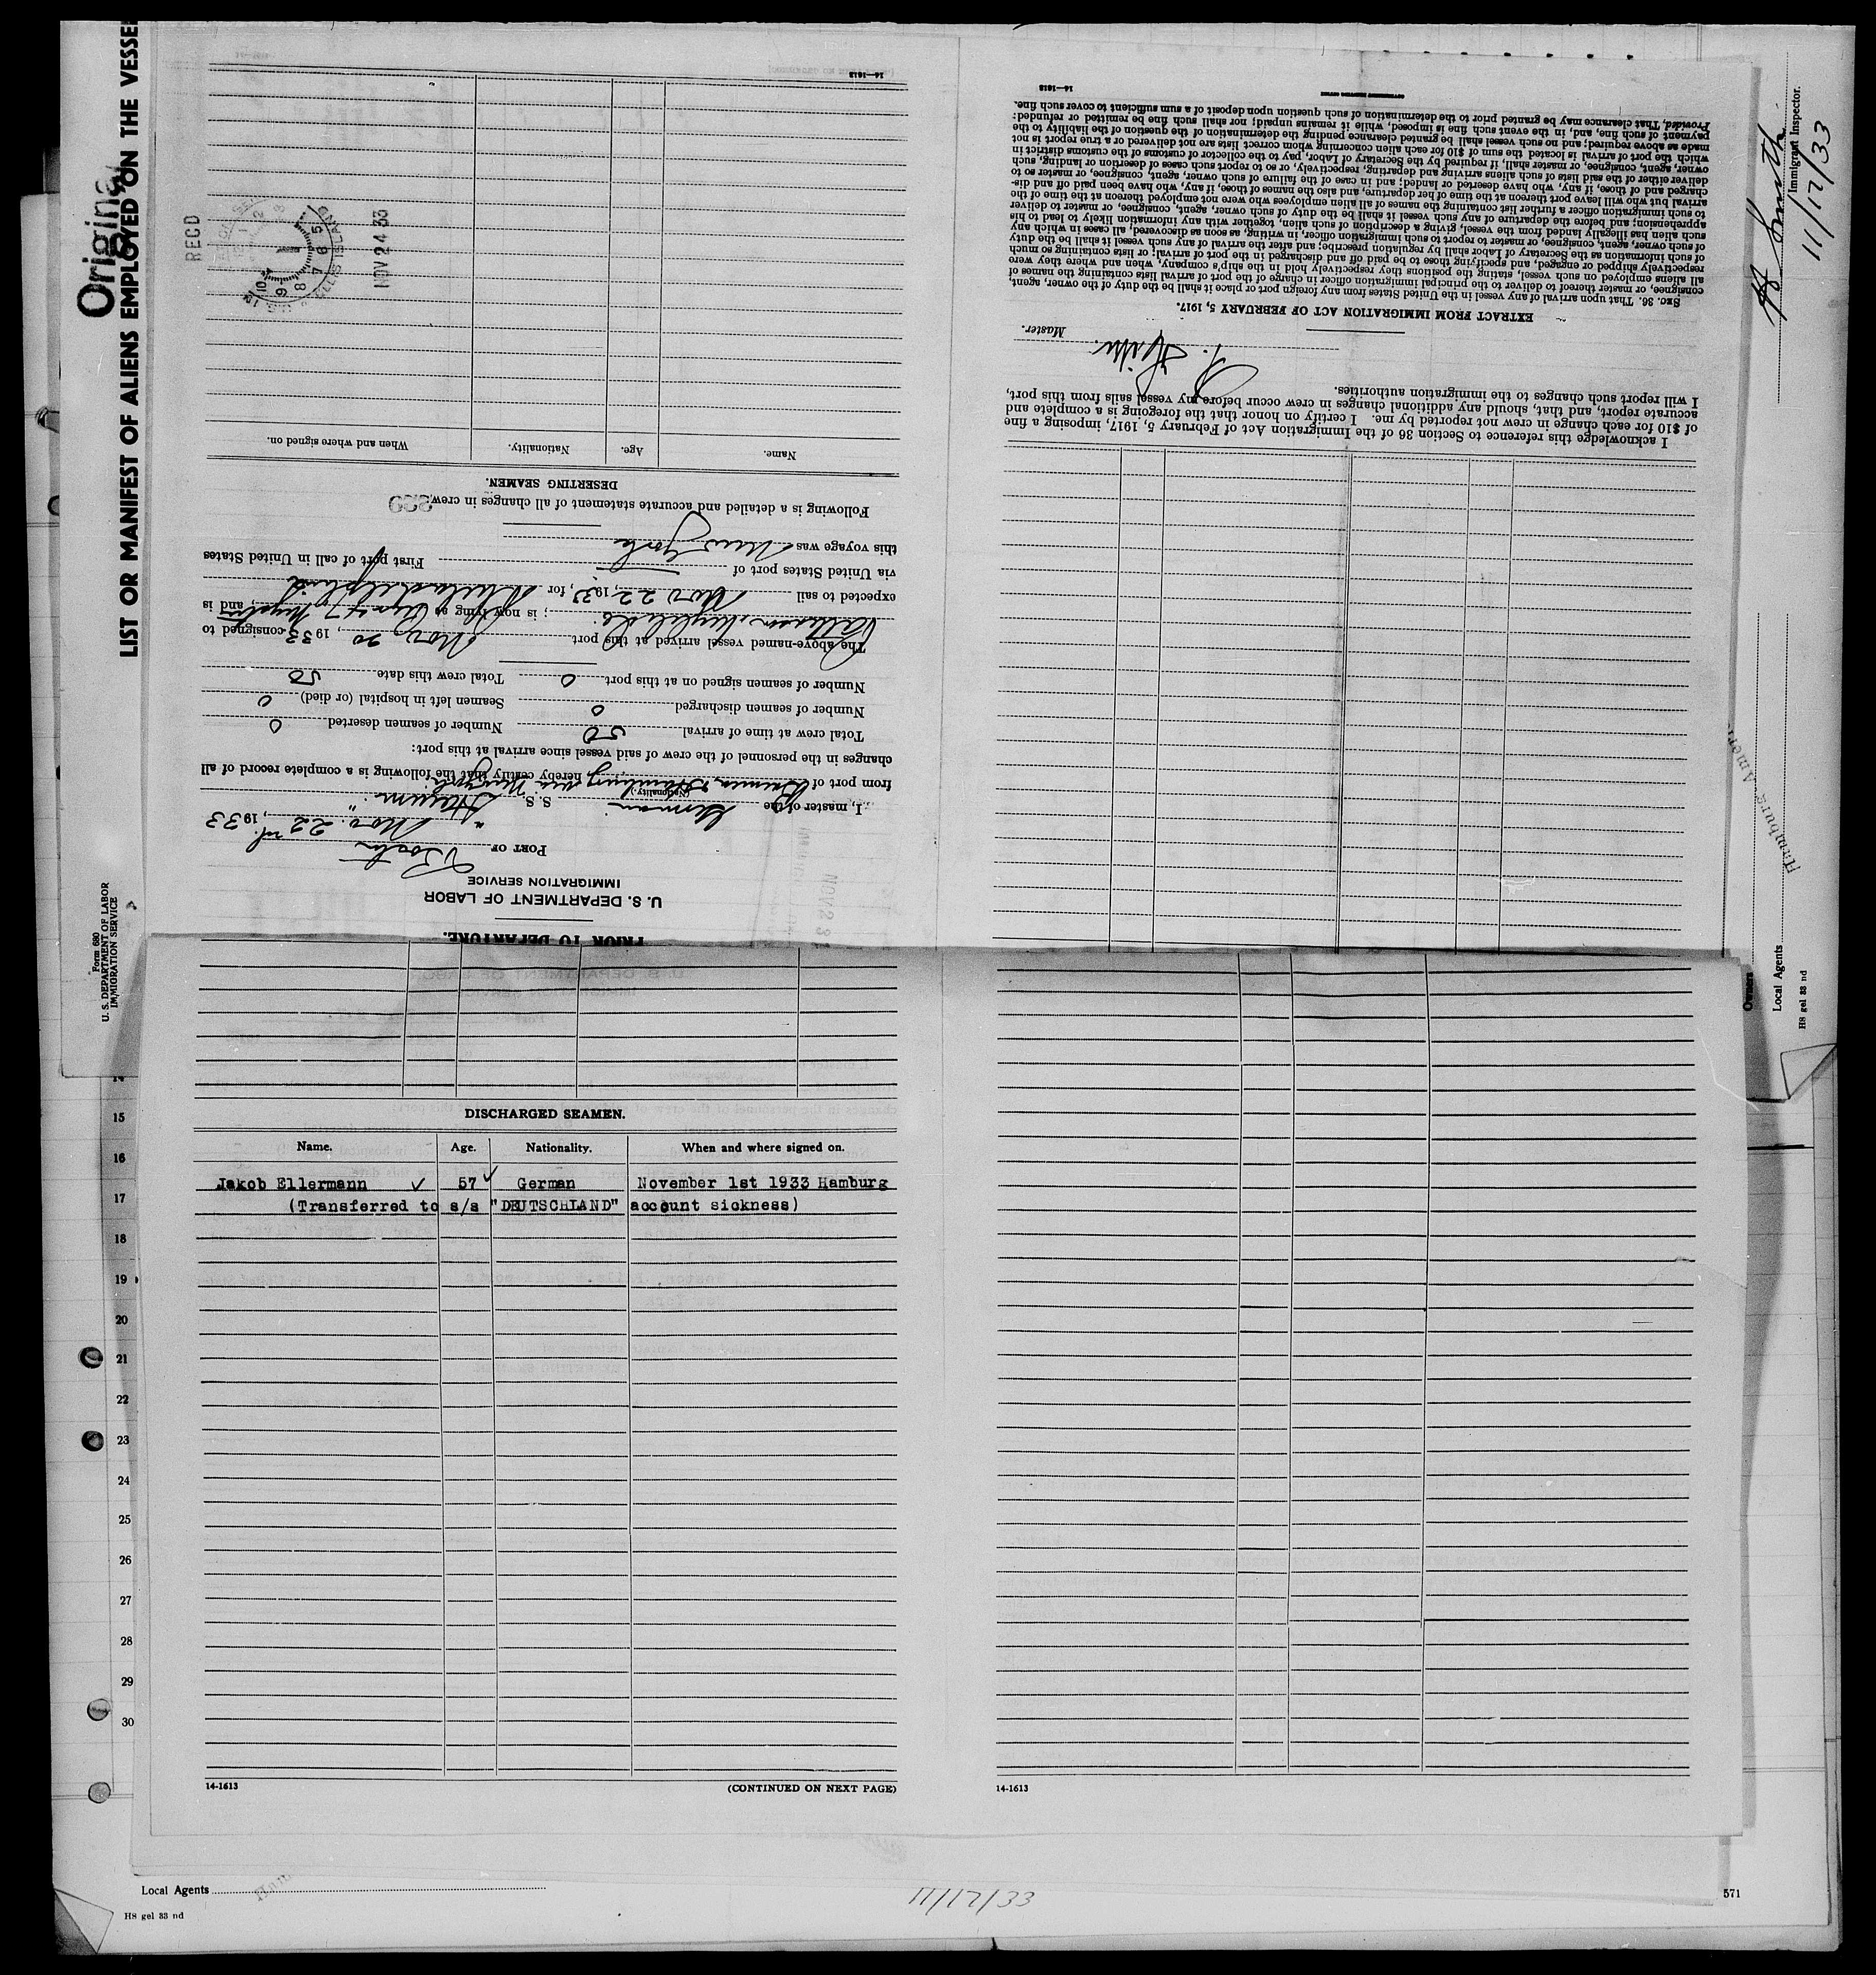 LIST OR MANIFEST OF ALIENS EMPLOYED ON THE VESSE
Original
Form 680
U. S. DEPARTMENT OF LABOR
IMMIGRATION SERVICE
PRIOR TO DEPARTURE.
U. S. DEPARTMENT OF LABOR
IMMIGRATION SERVICE
PORT OF Boston
Nov. 22nd, 1933
I, master of the German S. S. "Hagen"
(Nationality.)
from port of Bremen Hamburg via New York hereby certify that the following is a complete record of all
changes in the personnel of the crew of said vessel since arrival at this port:
Total crew at time of arrival 50 Number of seamen deserted 0
Number of seamen discharged 0 Seamen left in hospital (or died) 0
Number of seamen signed on at this port 0 Total crew this date 50
The above-named vessel arrived at this port Nov 20, 1933 consigned to
; is now lying at and is
expected to sail Nov 22, 1933, for Philadelphia
via United States port of First port of call in United States
this voyage was New York
Following is a detailed and accurate statement of all changes in crew.
DESERTING SEAMEN.
Name. Age. Nationality. When and where signed on.
14—1613
RECD
ELLIS ISLAND
NOV 24 33
I acknowledge this reference to Section 36 of the Immigration Act of February 5, 1917, imposing a fine
of $10 for each change in crew not reported by me. I certify on honor that the foregoing is a complete and
accurate report, and that, should any additional changes in crew occur before my vessel sails from this port,
I will report such changes to the immigration authorities.
Master.
EXTRACT FROM IMMIGRATION ACT OF FEBRUARY 5, 1917.
SEC. 36. That upon arrival of any vessel in the United States from any foreign port or place it shall be the duty of the owner, agent,
consignee, or master thereof to deliver to the principal immigration officer in charge of the port of arrival lists containing the names of
all aliens employed on such vessel, stating the positions they respectively hold in the ship's company, when and where they were
respectively shipped or engaged, and specifying those to be paid off and discharged in the port of arrival; or lists containing so much
of such information as the Secretary of Labor shall by regulation prescribe; and after the arrival of any such vessel it shall be the duty
of such owner, agent, consignee, or master to report to such immigration officer, in writing, as soon as discovered, all cases in which any
such alien has illegally landed from the vessel, giving a description of such alien, together with any information likely to lead to his
apprehension; and before the departure of any such vessel it shall be the duty of such owner, agent, consignee, or master to deliver
to such immigration officer a further list containing the names of all alien employees who were not employed thereon at the time of the
arrival but who will leave port thereon at the time of her departure, and also the names of those, if any, who have been paid off and dis-
charged and of those, if any, who have deserted or landed; and in case of the failure of such owner, agent, consignee, or master so to
deliver either of the said lists of such aliens arriving and departing, respectively, or so to report such cases of desertion or landing, such
owner, agent, consignee, or master shall, if required by the Secretary of Labor, pay to the collector of customs of the customs district in
which the port of arrival is located the sum of $10 for each alien concerning whom correct lists are not delivered or a true report is not
made as above required; and no such vessel shall be granted clearance pending the determination of the question of the liability to the
payment of such fine, and, in the event such fine is imposed, while it remains unpaid; nor shall such fine be remitted or refunded:
Provided, That clearance may be granted prior to the determination of such question upon deposit of a sum sufficient to cover such fine.
14—1613
Smith
Immigrant Inspector.
11/12/33
Hamburg Amer
Owners
Local Agents
H8 gel 33 nd
14
15
16
17
18
19
20
21
22
23
24
25
26
27
28
29
30
DISCHARGED SEAMEN.
Name. Age. Nationality. When and where signed on.
Jakob Ellermann ✓ 57 ✓ German November 1st 1933 Hamburg
(Transferred to s/s "DEUTSCHLAND" account sickness)
14-1613
(CONTINUED ON NEXT PAGE)
14-1613
Local Agents
H8 gel 33 nd
11/12/33
571